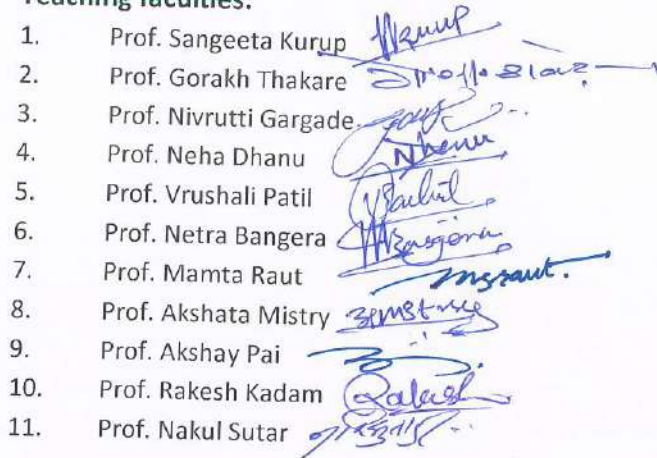 Teaching faculties:
1. Prof. Sangeeta Kurup
2. Prof. Gorakh Thakare
3. Prof. Nivrutti Gargade
4. Prof. Neha Dhanu NDhanu
5. Prof. Vrushali Patil VPatil
6. Prof. Netra Bangera NBangera
7. Prof. Mamta Raut msraut.
8. Prof. Akshata Mistry
9. Prof. Akshay Pai
10. Prof. Rakesh Kadam Rakesh
11. Prof. Nakul Sutar